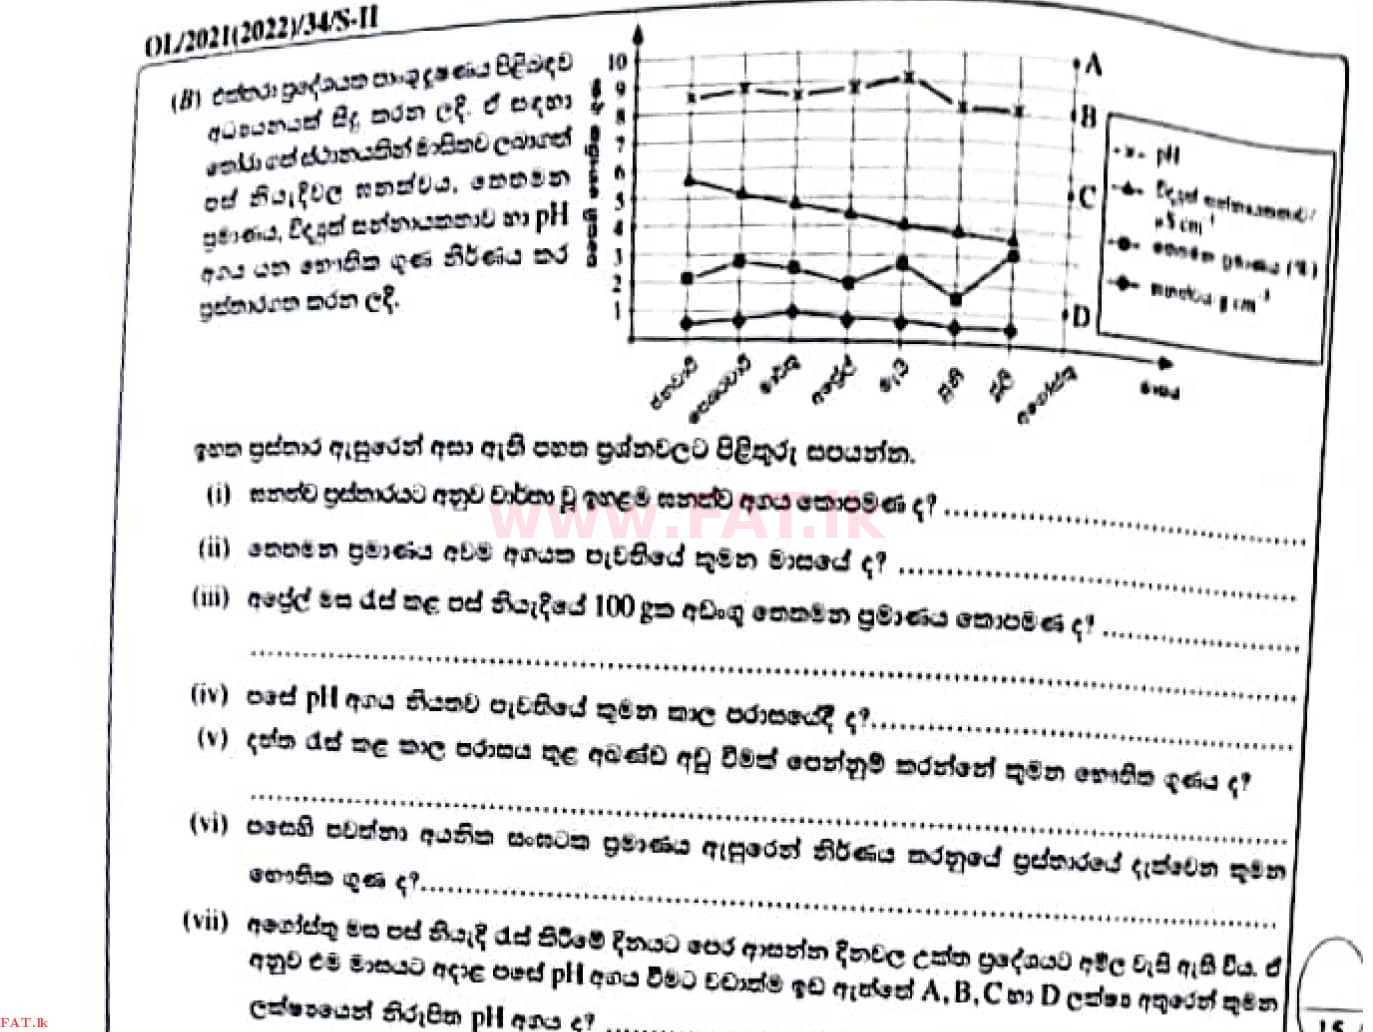 OL/2021(2022)/34/S-II
(B) එක්තරා ප්‍රදේශයක පාංශු දූෂණය පිළිබඳව
අධ්‍යයනයක් සිදු කරන ලදී. ඒ සඳහා
තෝරා ගත් ස්ථානයකින් මාසිකව ලබාගත්
පස් නියැදිවල ඝනත්වය, තෙතමන
ප්‍රමාණය, විද්‍යුත් සන්නායකතාව හා pH
අගය යන භෞතික ගුණ නිර්ණය කර
ප්‍රස්තාරගත කරන ලදී.
10
9
8
7
6
5
4
3
2
1
A
B
C
D
pH
විද්‍යුත් සන්නායකතාව/
µS cm⁻¹
තෙතමන ප්‍රමාණය (%)
ඝනත්වය/g cm⁻³
ජනවාරි
පෙබරවාරි
මාර්තු
අප්‍රේල්
මැයි
ජූනි
ජූලි
අගෝස්තු
මාසය
ඉහත ප්‍රස්තාර ඇසුරෙන් අසා ඇති පහත ප්‍රශ්නවලට පිළිතුරු සපයන්න.
(i) ඝනත්ව ප්‍රස්තාරයට අනුව වාර්තා වූ ඉහළම ඝනත්ව අගය කොපමණ ද?
www.FAT.lk
(ii) තෙතමන ප්‍රමාණය අවම අගයක පැවතියේ කුමන මාසයේ ද?
(iii) අප්‍රේල් මස රැස් කළ පස් නියැදියේ 100 gක අඩංගු තෙතමන ප්‍රමාණය කොපමණ ද?
(iv) පසේ pH අගය නියතව පැවතියේ කුමන කාල පරාසයේදී ද?
(v) දත්ත රැස් කළ කාල පරාසය තුළ අඛණ්ඩ අඩු වීමක් පෙන්නුම් කරන්නේ කුමන භෞතික ගුණය ද?
(vi) පසෙහි පවත්නා අයනික සංඝටක ප්‍රමාණය ඇසුරෙන් නිර්ණය කරනුයේ ප්‍රස්තාරයේ දැක්වෙන කුමන
භෞතික ගුණ ද?
(vii) අගෝස්තු මස පස් නියැදි රැස් කිරීමේ දිනයට පෙර ආසන්න දිනවල උක්ත ප්‍රදේශයට අම්ල වැසි ඇති විය. ඒ
අනුව එම මාසයට අදාළ පසේ pH අගය වීමට වඩාත්ම ඉඩ ඇත්තේ A, B, C හා D ලක්ෂ්‍ය අතුරෙන් කුමන
ලක්ෂ්‍යයෙන් නිරූපිත pH අගය ද?
15
FAT.lk